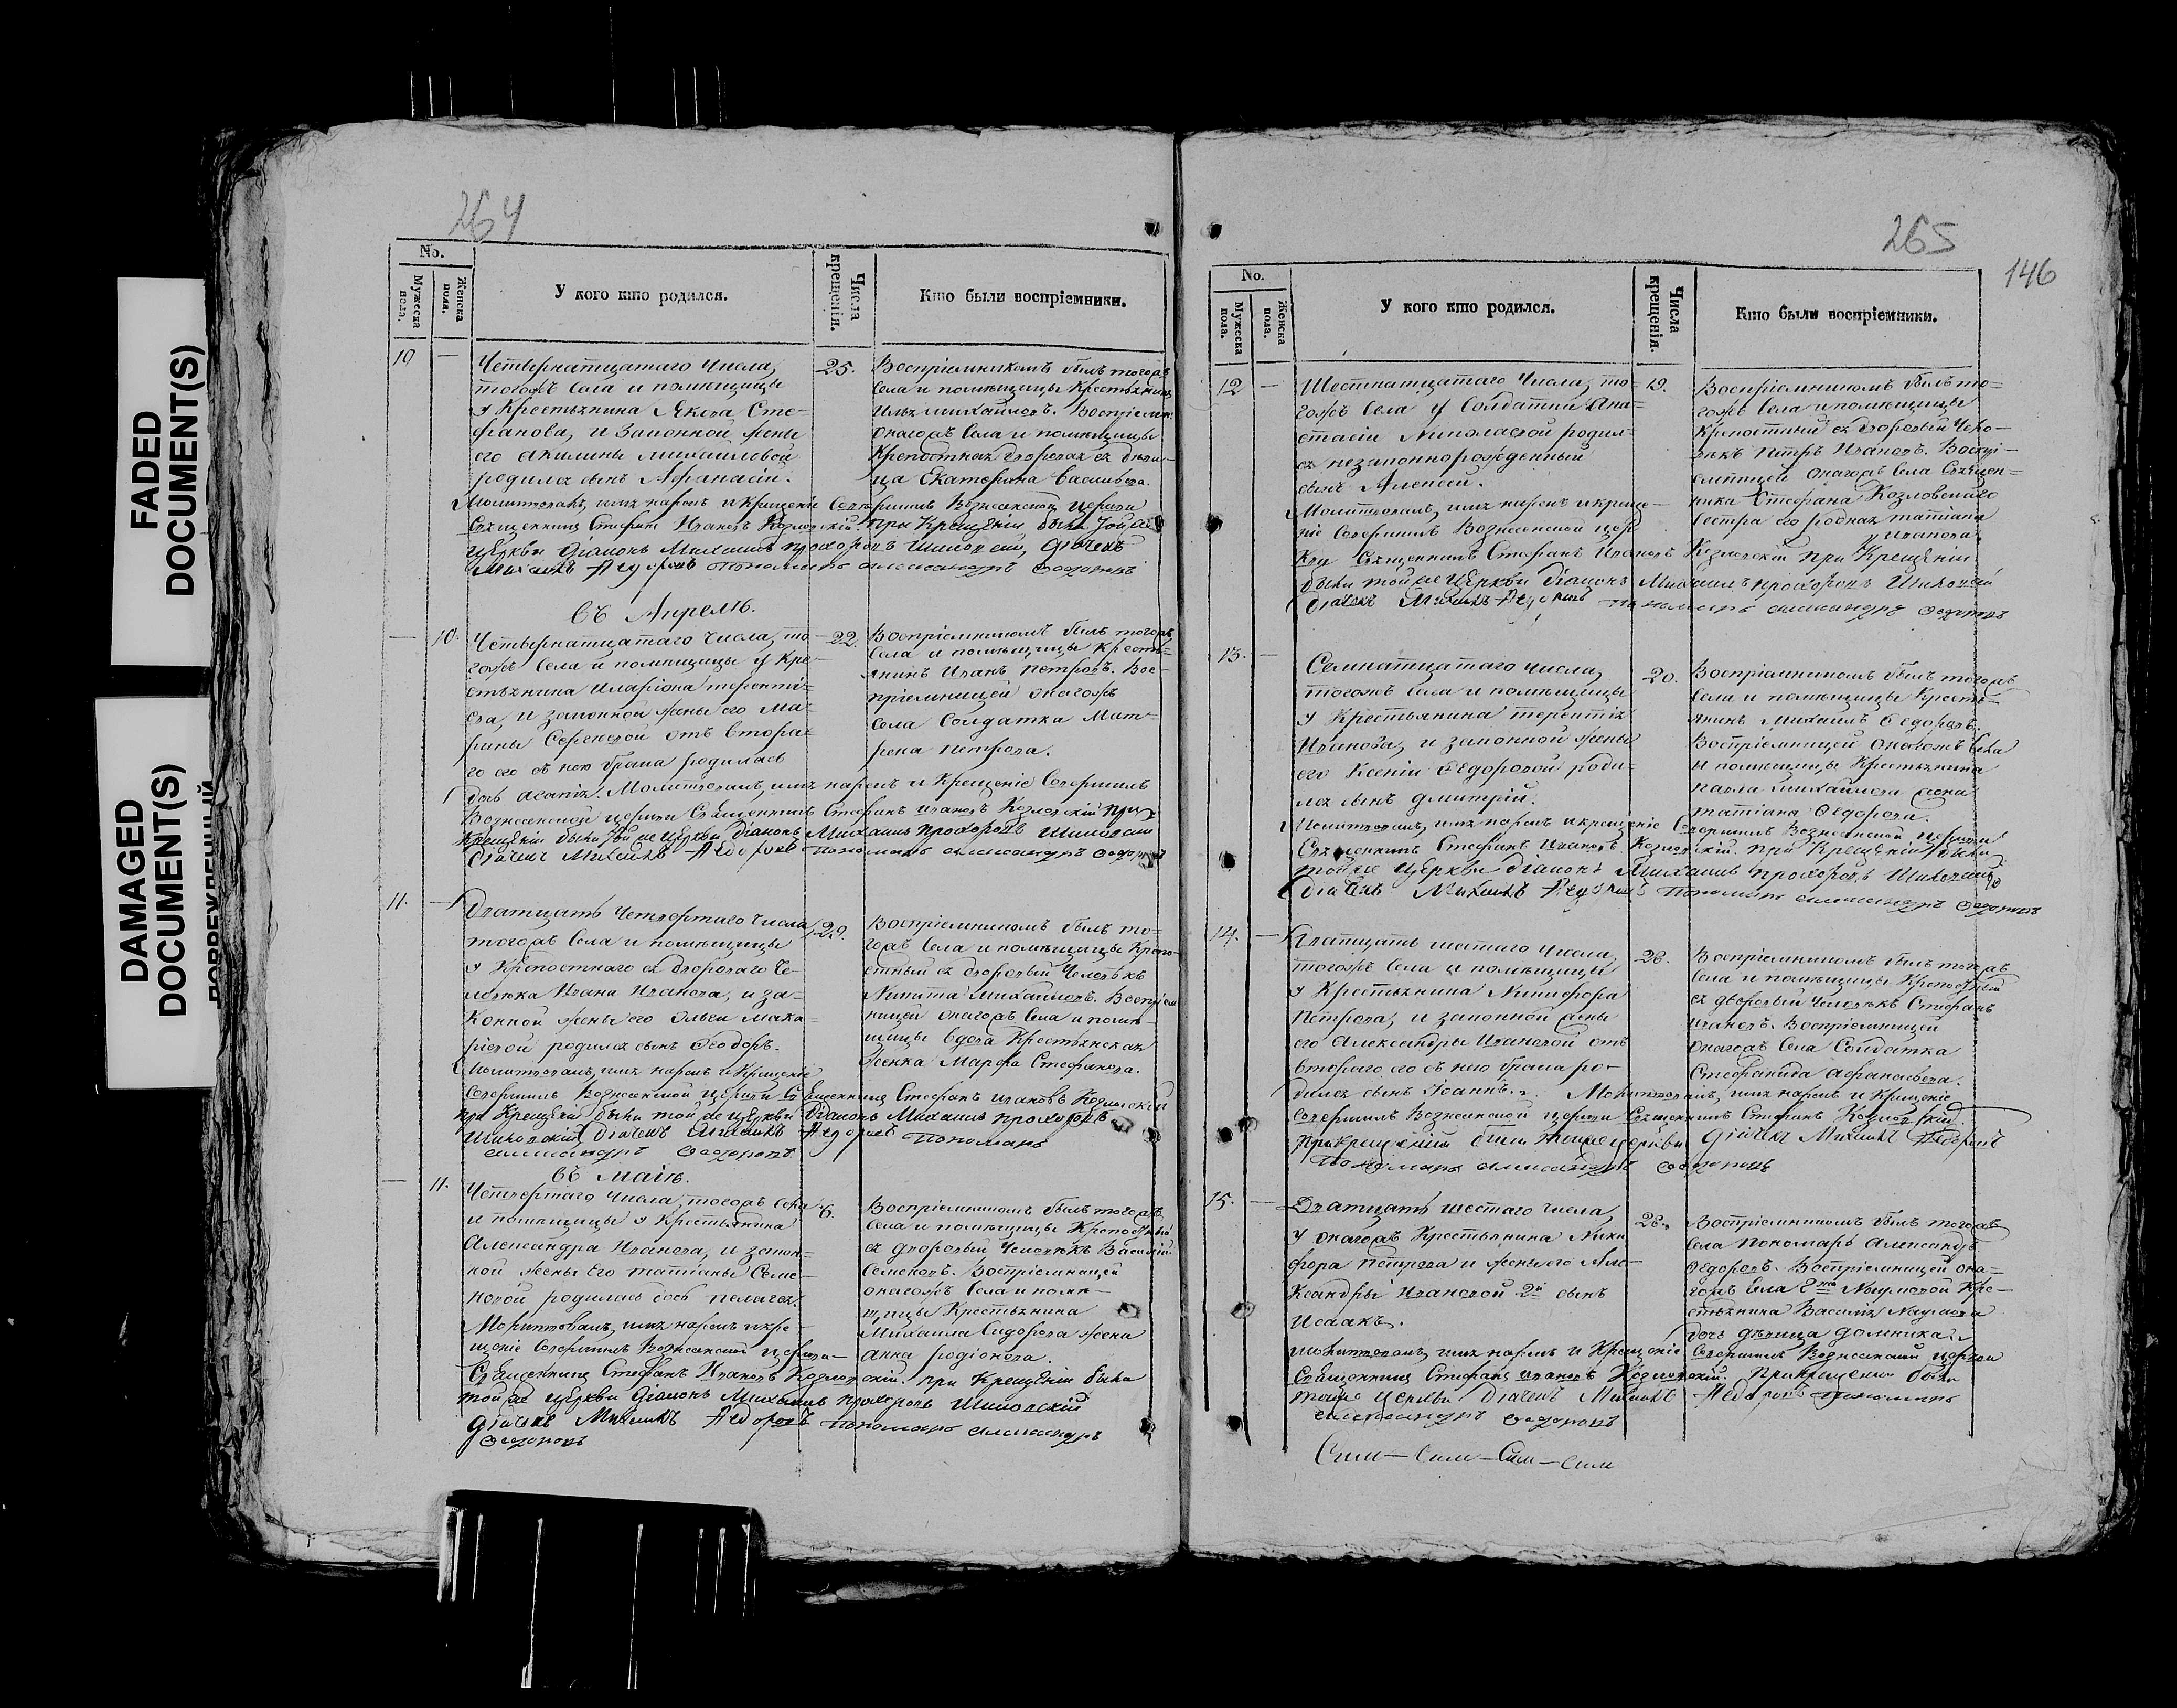 FADED
DOCUMENT(S)
DAMAGED
DOCUMENT(S)
264
No.
Мужеска пола.
Женска пола.
У кого кто родился.
Числа крещенія.
Кто были воспріемники.
10 —
Четвернатцатаго числа,
тогожъ села и помѣщицы
у крестьянина Якова Сте-
фанова, и законной жены
его Акилины Михайловой
родился сынъ Афанасій.
25.
Воспріемникомъ былъ тогожъ
села и помѣщицы крестьянинъ
Илья Михайловъ. Воспріемн.
онагожъ села и помѣщицы
крѣпостная дворовая дѣви-
ца Екатерина Васильева.
Молитвовалъ, имя нарекъ и крещеніе совершилъ Вознесенской церкви
Священникъ Стефанъ Ивановъ Козловскій. При крещеніи были той же
церкви діаконъ Михаилъ Прохоровъ Шиловскій, дьячекъ
Михаилъ Ѳедоровъ пономарь Александръ Ѳедоровъ
въ Апрелѣ.
— 10.
Четвернатцатаго числа, то-
гожъ села и помѣщицы у кре-
стьянина Иларіона Терентіе-
ва, и законной жены его Ма-
рины Сергеевой отъ втора-
го его съ нею брака родилась
дочь Агапія. Молитвовалъ, имя нарекъ и крещеніе совершилъ
22.
Воспріемникомъ былъ тогожъ
села и помѣщицы кресть-
янинъ Иванъ Петровъ. Вос-
пріемницей онагожъ
села солдатка Мат-
рена Петрова.
Вознесенской церкви Священникъ Стефанъ Ивановъ Козловскій при
крещеніи были той же церкви діаконъ Михаилъ Прохоровъ Шиловскій
дьячекъ Михаилъ Ѳедоровъ пономарь Александръ Ѳедоровъ
11. —
Дватцать четвертаго числа
тогожъ села и помѣщицы
у крѣпостнаго двороваго че-
ловѣка Ивана Иванова, и за-
конной жены его Ольги Мака-
ріевой родился сынъ Ѳеодоръ.
Молитвовалъ, имя нарекъ и крещеніе
29.
Воспріемникомъ былъ то-
гожъ села и помѣщицы крѣпо-
стный дворовый человѣкъ
Никита Михайловъ. Воспріем
ницей онагожъ села и помѣ-
щицы вдова крестьянская
женка Марфа Стефанова.
совершилъ Вознесенской церкви Священникъ Стефанъ Ивановъ Козловскій
при крещеніи были той же церкви діаконъ Михаилъ Прохоровъ
Шиловскій дьячекъ Михаилъ Ѳедоровъ пономарь
Александръ Ѳедоровъ.
въ Маіѣ.
— 11.
Четвертаго числа, тогожъ села
и помѣщицы у крестьянина
Александра Иванова, и закон-
ной жены его Татіаны Семе-
новой родилась дочь Пелагея.
Молитвовалъ, имя нарекъ и кре-
щеніе совершилъ Вознесенской церкви
6.
Воспріемникомъ былъ тогожъ
села и помѣщицы крѣпостный
дворовый человѣкъ Василій
Семеновъ. Воспріемницей
онагожъ села и помѣ-
щицы крестьянина
Михаила Сидорова жена
Анна Родіонова.
Священникъ Стефанъ Ивановъ Козловскій. при крещеніи были
той же церкви діаконъ Михаилъ Прохоровъ Шиловскій
дьячекъ Михаилъ Ѳедоровъ пономарь Александръ
Ѳедоровъ
265
146
No.
Мужеска пола.
Женска пола.
У кого кто родился.
Числа крещенія.
Кто были воспріемники.
12 —
Шестнатцатаго числа, то-
гожъ села у солдатки Ана-
стасіи Николаевой родил-
ся незаконнорожденный
сынъ Алексей.
Молитвовалъ, имя нарекъ и креще-
ніе совершилъ Вознесенской цер
19.
Воспріемникомъ былъ то-
гожъ села и помѣщицы
крѣпостный дворовый чело-
вѣкъ Петръ Ивановъ. Воспрі-
емницей онагожъ села Священ-
ника Стефана Козловскаго
сестра его родная Татіана
Иванова.
кви Священникъ Стефанъ Ивановъ Козловскій при крещеніи
были той же церкви діаконъ Михаилъ Прохоровъ Шиловскій
дьячекъ Михаилъ Ѳедоровъ пономарь Александръ Ѳедоровъ
13. —
Семнатцатаго числа,
тогожъ села и помѣщицы
у крестьянина Терентія
Иванова, и законной жены
его Ксеніи Ѳедоровой роди-
лся сынъ Дмитрій.
20.
Воспріемникомъ былъ тогожъ
села и помѣщицы кресть-
янинъ Михаилъ Ѳедоровъ.
Воспріемницей онагожъ села
и помѣщицы крестьянина
Павла Михайлова жена
Татіана Ѳедорова.
Молитвовалъ, имя нарекъ и крещеніе совершилъ Вознесенской церкви
Священникъ Стефанъ Ивановъ Козловскій. при крещеніи были
той же церкви діаконъ Михаилъ Прохоровъ Шиловскій
дьячекъ Михаилъ Ѳедоровъ пономарь Александръ Ѳедоровъ
14. —
Дватцать шестаго числа,
тогожъ села и помѣщицы
у крестьянина Никифора
Петрова, и законной жены
его Александры Ивановой отъ
втораго его съ нею брака ро-
дился сынъ Іоаннъ. Молитвовалъ, имя нарекъ и крещеніе
28.
Воспріемникомъ былъ тогожъ
села и помѣщицы крѣпостный
дворовый человѣкъ Стефанъ
Ивановъ. Воспріемницей
онагожъ села солдатка
Стефанида Афанасьева.
совершилъ Вознесенской церкви Священникъ Стефанъ Козловскій.
при крещеніи были тойже церкви дьячекъ Михаилъ Ѳедоровъ
пономарь Александръ Ѳедоровъ
15. —
Дватцать шестаго числа,
у онагожъ крестьянина Ники
фора Петрова и жены его Але-
ксандры Ивановой 2й сынъ
Исаакъ.
28.
Воспріемникомъ былъ тогожъ
села пономарь Александръ
Ѳедоровъ. Воспріемницей она-
гожъ села Наумовой кре-
стьянина Василія Наумова
дочь дѣвица Домника.
Молитвовалъ, имя нарекъ и крещеніе совершилъ Вознесенской церкви
Священникъ Стефанъ Ивановъ Козловскій. При крещеніи были
тойже церкви дьячекъ Михаилъ Ѳедоровъ пономарь
Александръ Ѳедоровъ